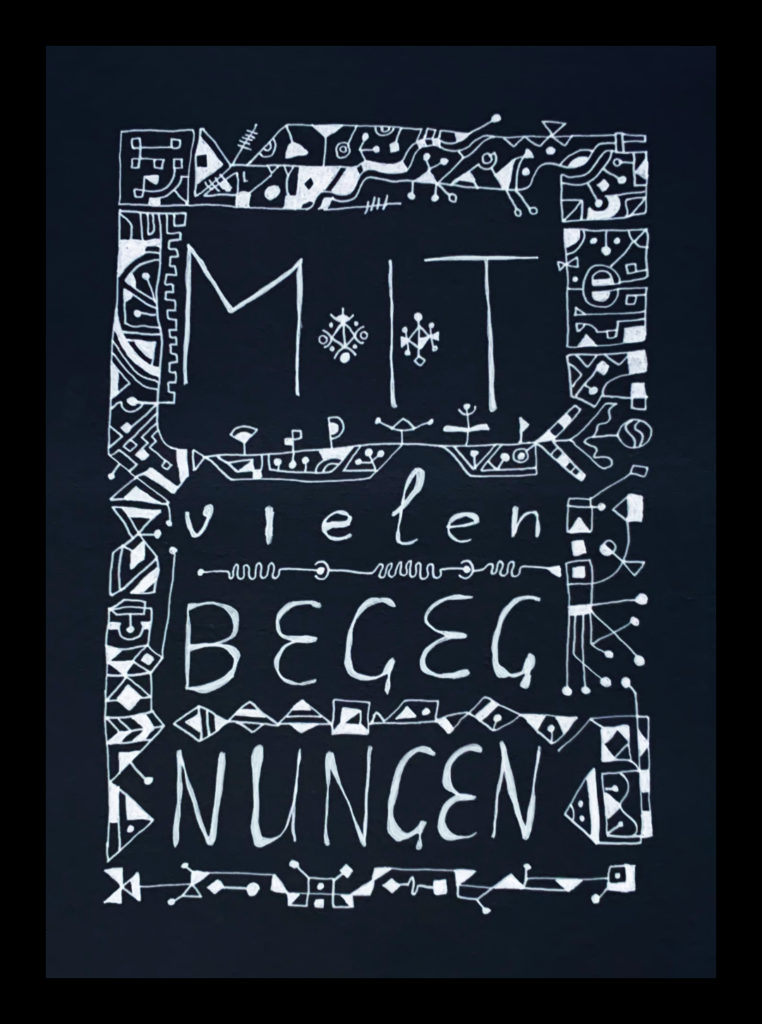 MIT
vielen
BEGEG
NUNGEN